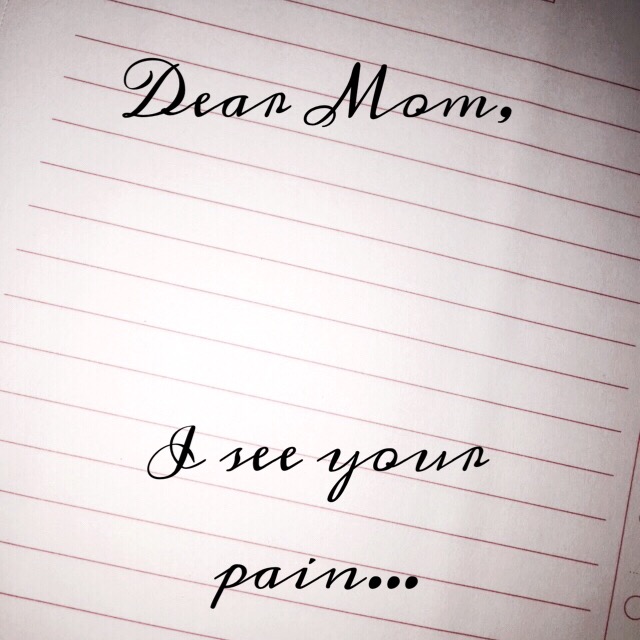 Dear Mom,
I see your
pain...